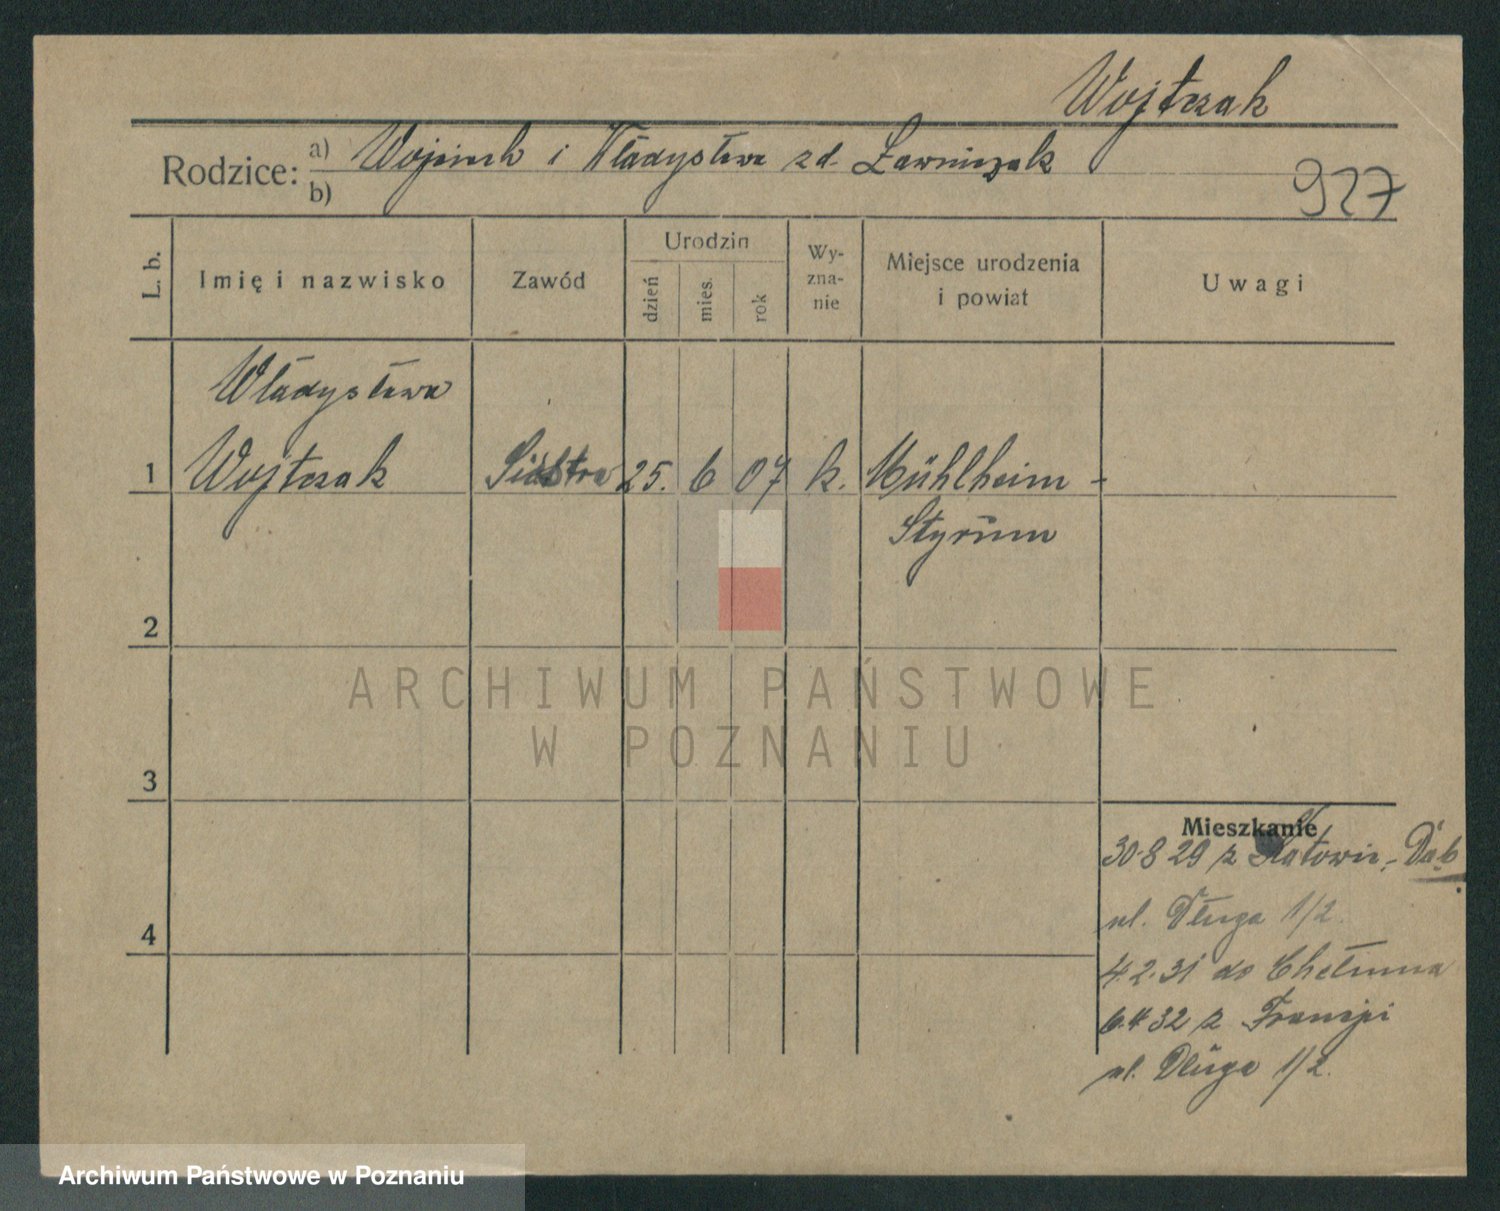 Wojtczak
Rodzice: a) Wojciech i Władysława z d. Ławniczak
b)
927
L. b.
Imię i nazwisko
Zawód
Urodzin
dzień
mies.
rok
Wy-
zna-
nie
Miejsce urodzenia
i powiat
Uwagi
Władysława
1 Wojtczak Siostra 25. 6 07 k. Mühlheim -
Styrum
2
ARCHIWUM PAŃSTWOWE
W POZNANIU
3
Mieszkanie
30.8 29 z Katowic, Dąb
ul. Długa 1/2.
4
4.2.31 do Chełmna
6.4 32 z Francji
ul. Długa 1/2.
Archiwum Państwowe w Poznaniu